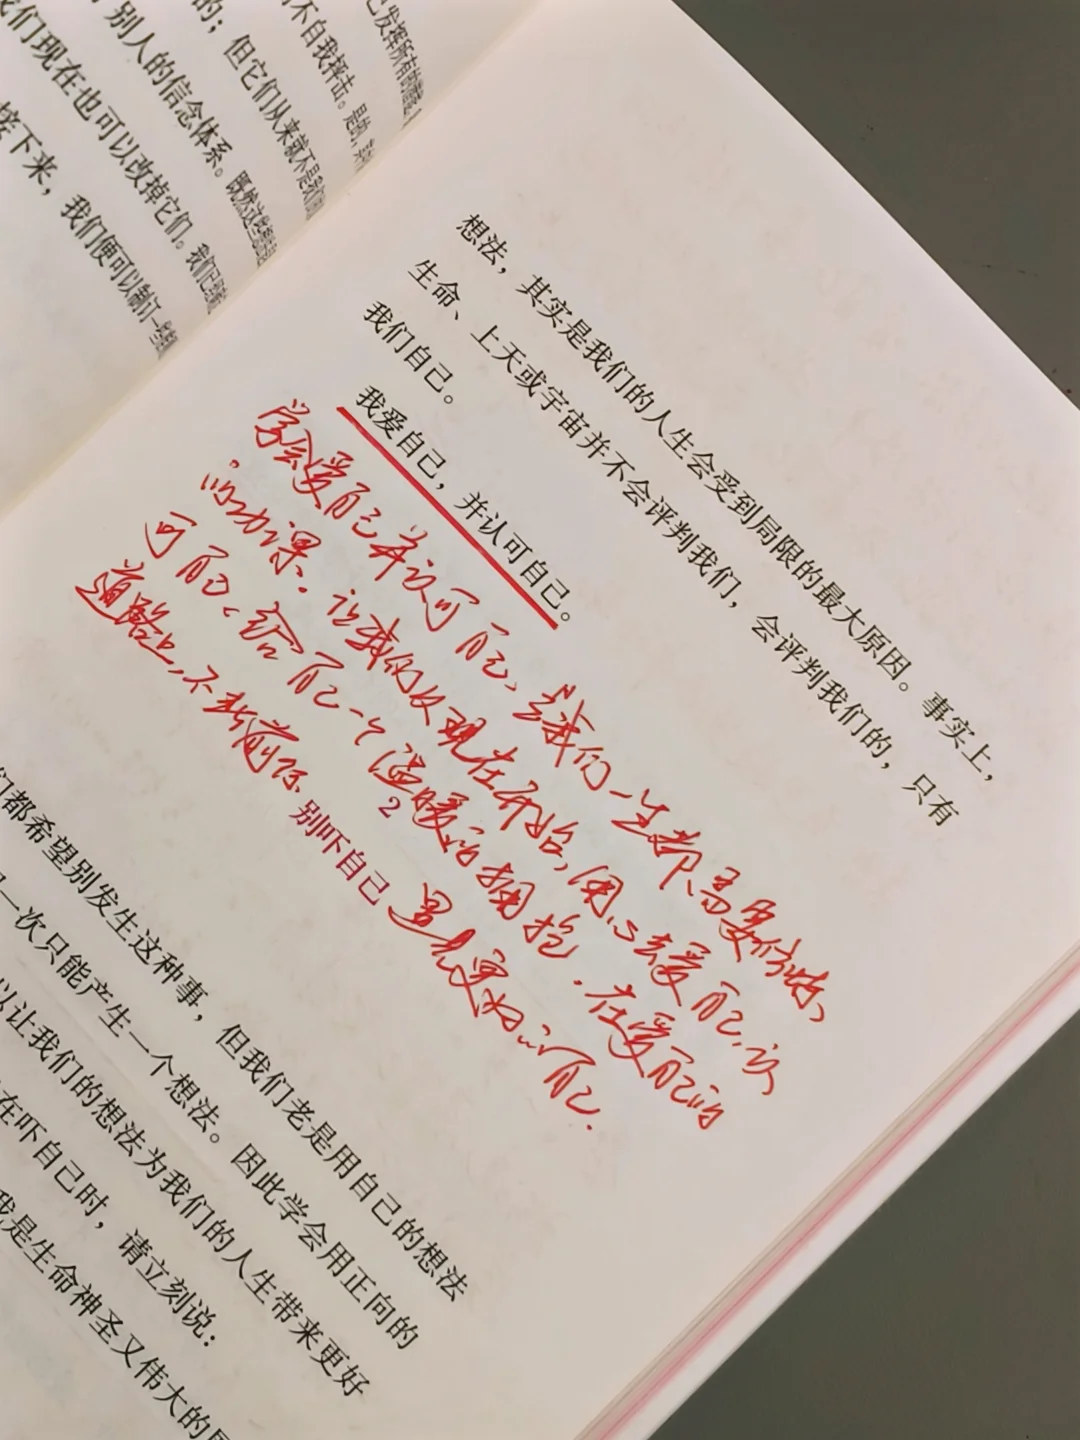 己发挥所有的
不自我抨击。是的，
的；但它们从来就不是我们
别人的信念体系。既然这些
我们现在也可以改掉它们。我们已
接下来，我们便可以制订一些
想法，其实是我们的人生会受到局限的最大原因。事实上，
生命、上天或宇宙并不会评判我们，会评判我们的，只有
我们自己。
我爱自己，并认可自己。
学会爱自己并认可自己，是我们一生都需要修炼
的功课。让我们从现在开始，用心去爱自己，认
可自己，给自己一个温暖的拥抱．在爱自己的
道路上，不断前行
遇见更好的自己．
2
别吓自己
们都希望别发生这种事，但我们老是用自己的想法
一次只能产生一个想法。因此学会用正向的
以让我们的想法为我们的人生带来更好
在吓自己时，请立刻说：
我是生命神圣又伟大的